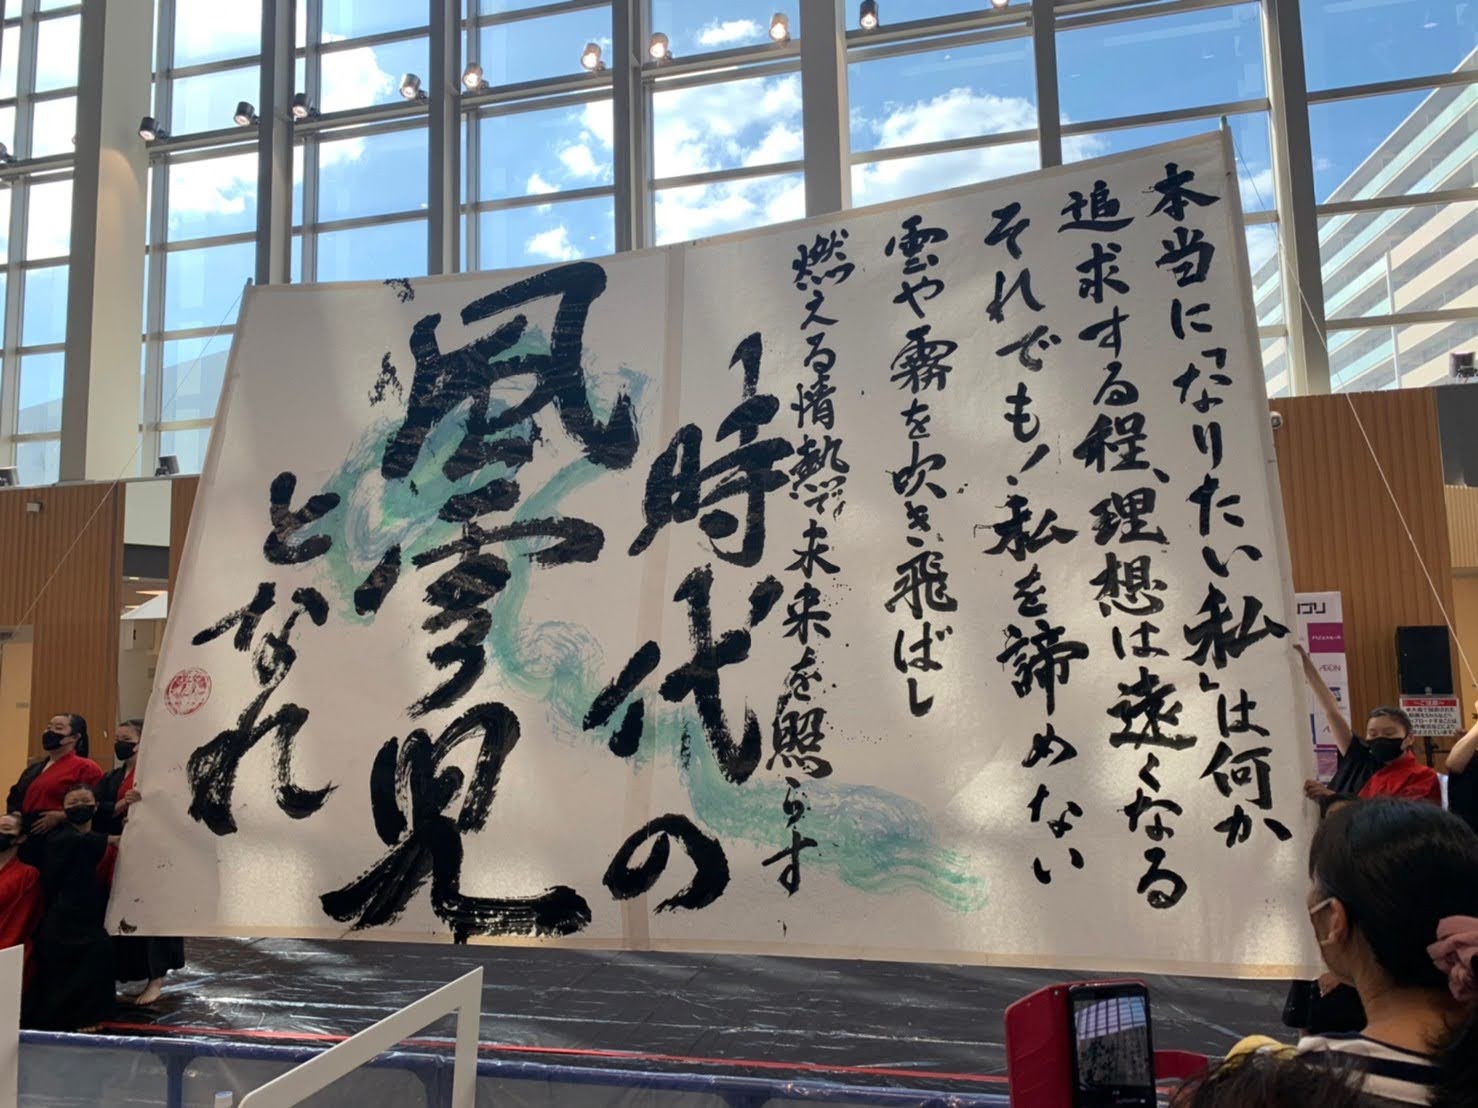 本当に「なりたい私」は何か
追求する程、理想は遠くなる
それでも！私を諦めない
雲や霧を吹き飛ばし
燃える情熱で未来を照らす
時代の
風雲児
となれ
ÆON